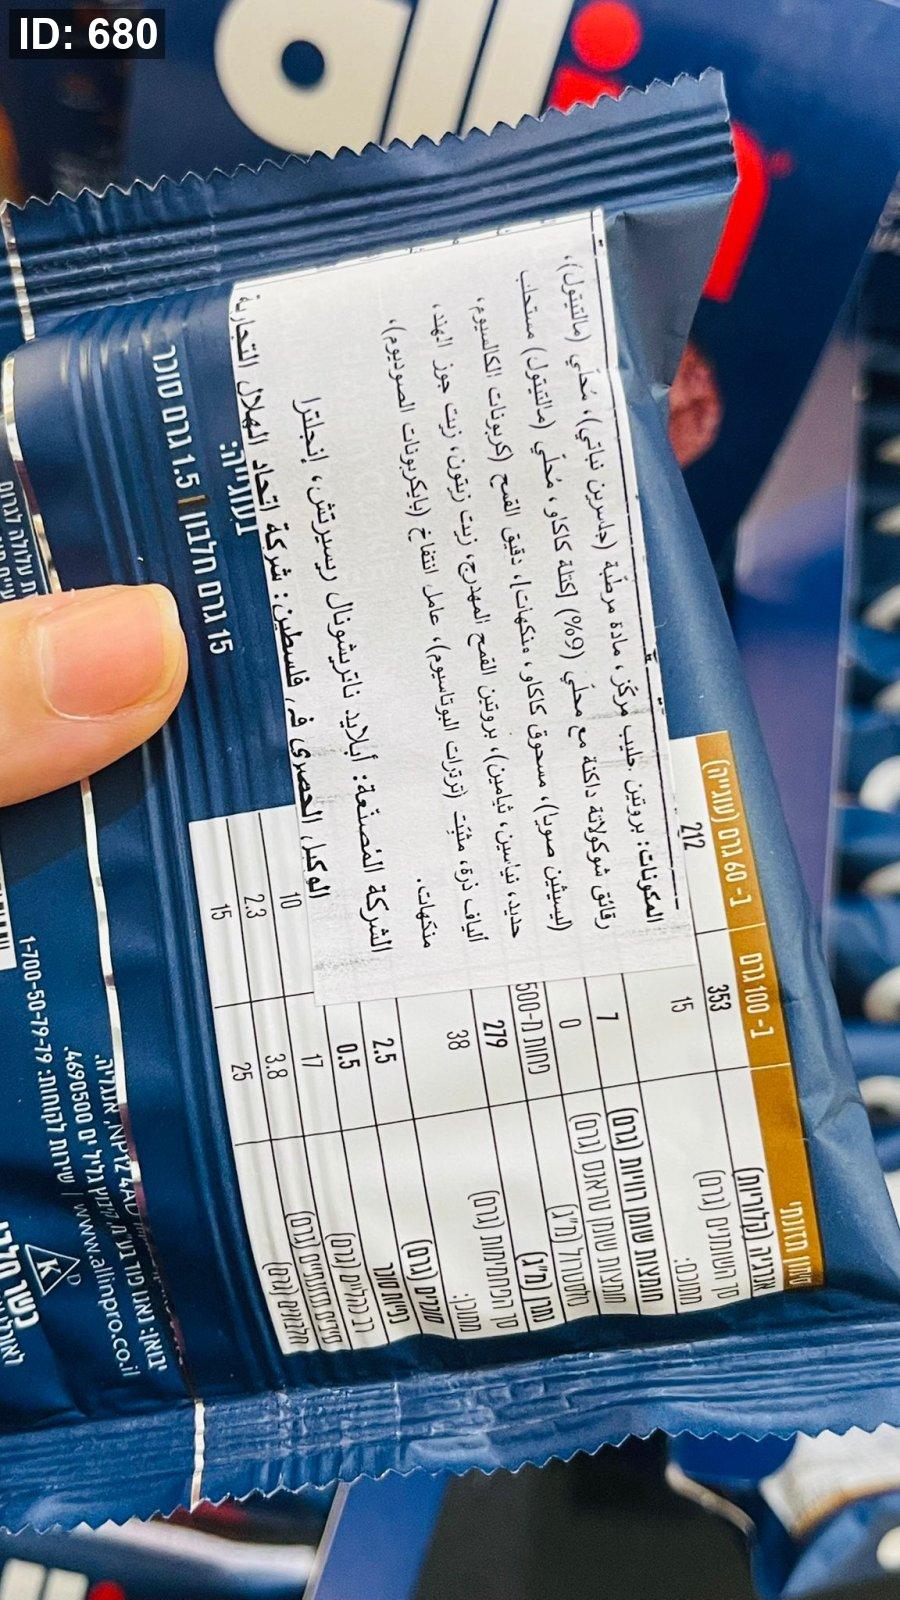 ID: 680
all in
המכונות
المكونات: بروتين حليب مركّز، مادة مرطّبة (جلسرين نباتي)، مُحلّي (مالتيتول)،
رقائق شوكولاتة داكنة مع محلّي (9%) [كتلة كاكاو، مُحلّي (مالتيتول) مستحلب
(ليسيثين صويا)، مسحوق كاكاو، منكهات]، دقيق القمح (كربونات الكالسيوم،
حديد، نياسين، ثيامين)، بروتين القمح المهدرج، زيت زيتون، زيت جوز الهند،
ألياف ذرة، مثبّت (ترترات البوتاسيوم)، عامل انتفاخ (بايكربونات الصوديوم)،
منكهات.
الشركة المُصنّعة: أبلايد ناتريشونال ريسيرتش، إنجلترا
الوكيل الحصري في فلسطين: شركة اتحاد الهلال التجارية
ב- 100 גרם
ב- 60 גרם (עוגייה)
אנרגיה (קלוריות) 353 212
סך השומנים (גרם) 15
מתוכם:
חומצות שומן רוויות (גרם) 7
חומצות שומן טראנס (גרם)
כולסטרול (מ"ג) 0
נתרן (מ"ג) 279
סך הפחמימות (גרם) 38
מתוכן:
סוכרים (גרם) 2.5
כפיות סוכר 0.5
רב כהליים (גרם) 17 10
סיבים תזונתיים (גרם) 3.8 2.3
חלבונים (גרם) 25 15
15 גרם חלבון | 1.5 גרם סוכר
4690500
שירות לקוחות: 1-700-50-79-79
www.allinpro.co.il
K